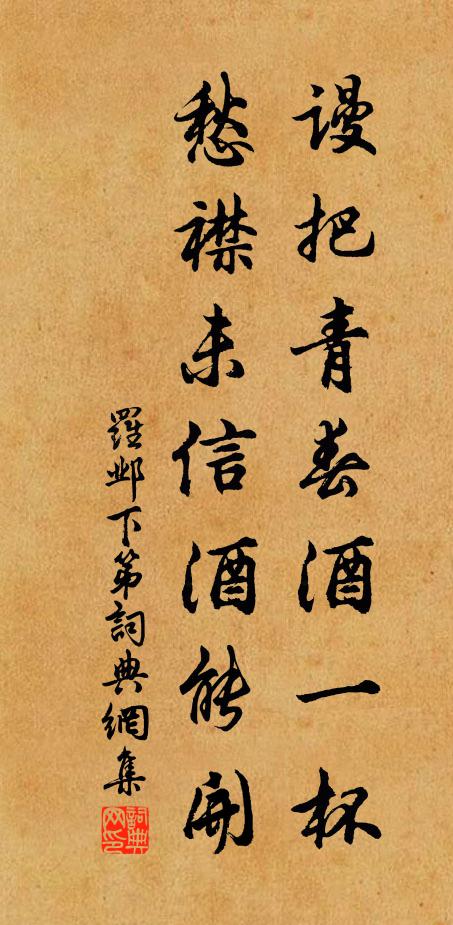 謾把青春酒一杯
愁襟未信酒能開
羅鄴下第詞典網集
詞典网印